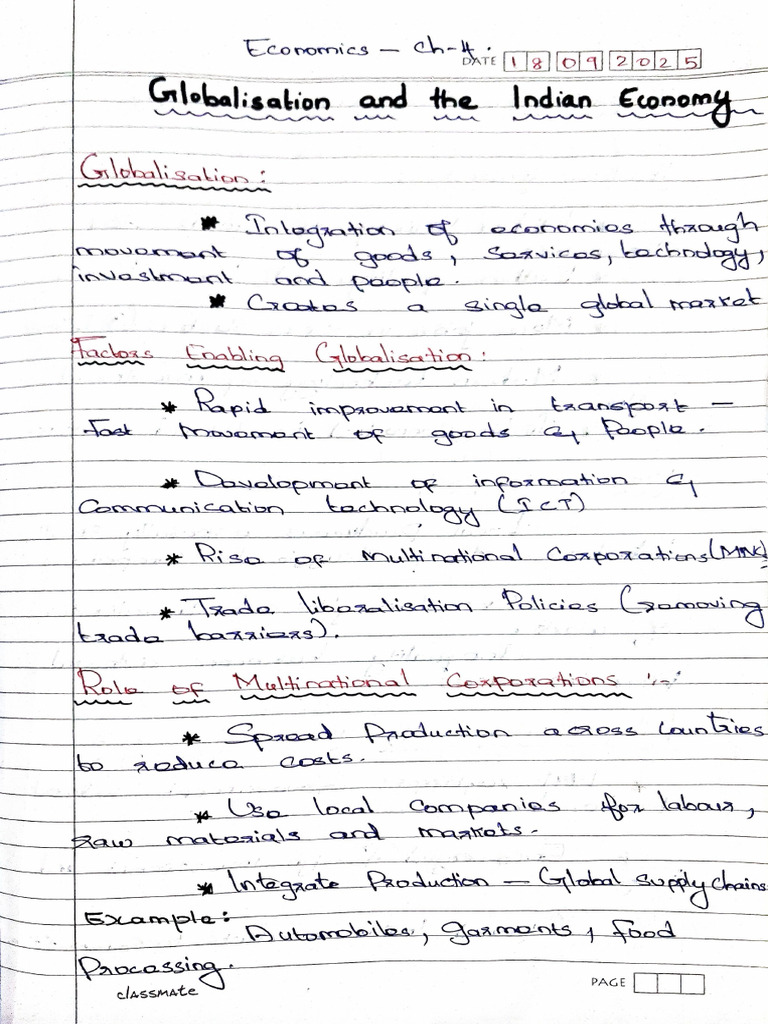 Economics – Ch-4.
DATE 18 09 2025
Globalisation and the Indian Economy
Globalisation:
* Integration of economies through
movement of goods, Services, technology,
investment and people.
* Creates a single global market
Factors Enabling Globalisation:
* Rapid improvement in transport –
fast movement of goods & People.
* Development of information &
Communication technology (ICT)
* Rise of Multinational Corporations (MNC)
* Trade liberalisation Policies (removing
trade barriers).
Role of Multinational Corporations :-
* Spread Production across countries
to reduce costs.
* Use local companies for labour,
raw materials and markets.
* Integrate Production – Global supply chains
Example:
Automobiles, garments, food
Processing.
classmate
PAGE